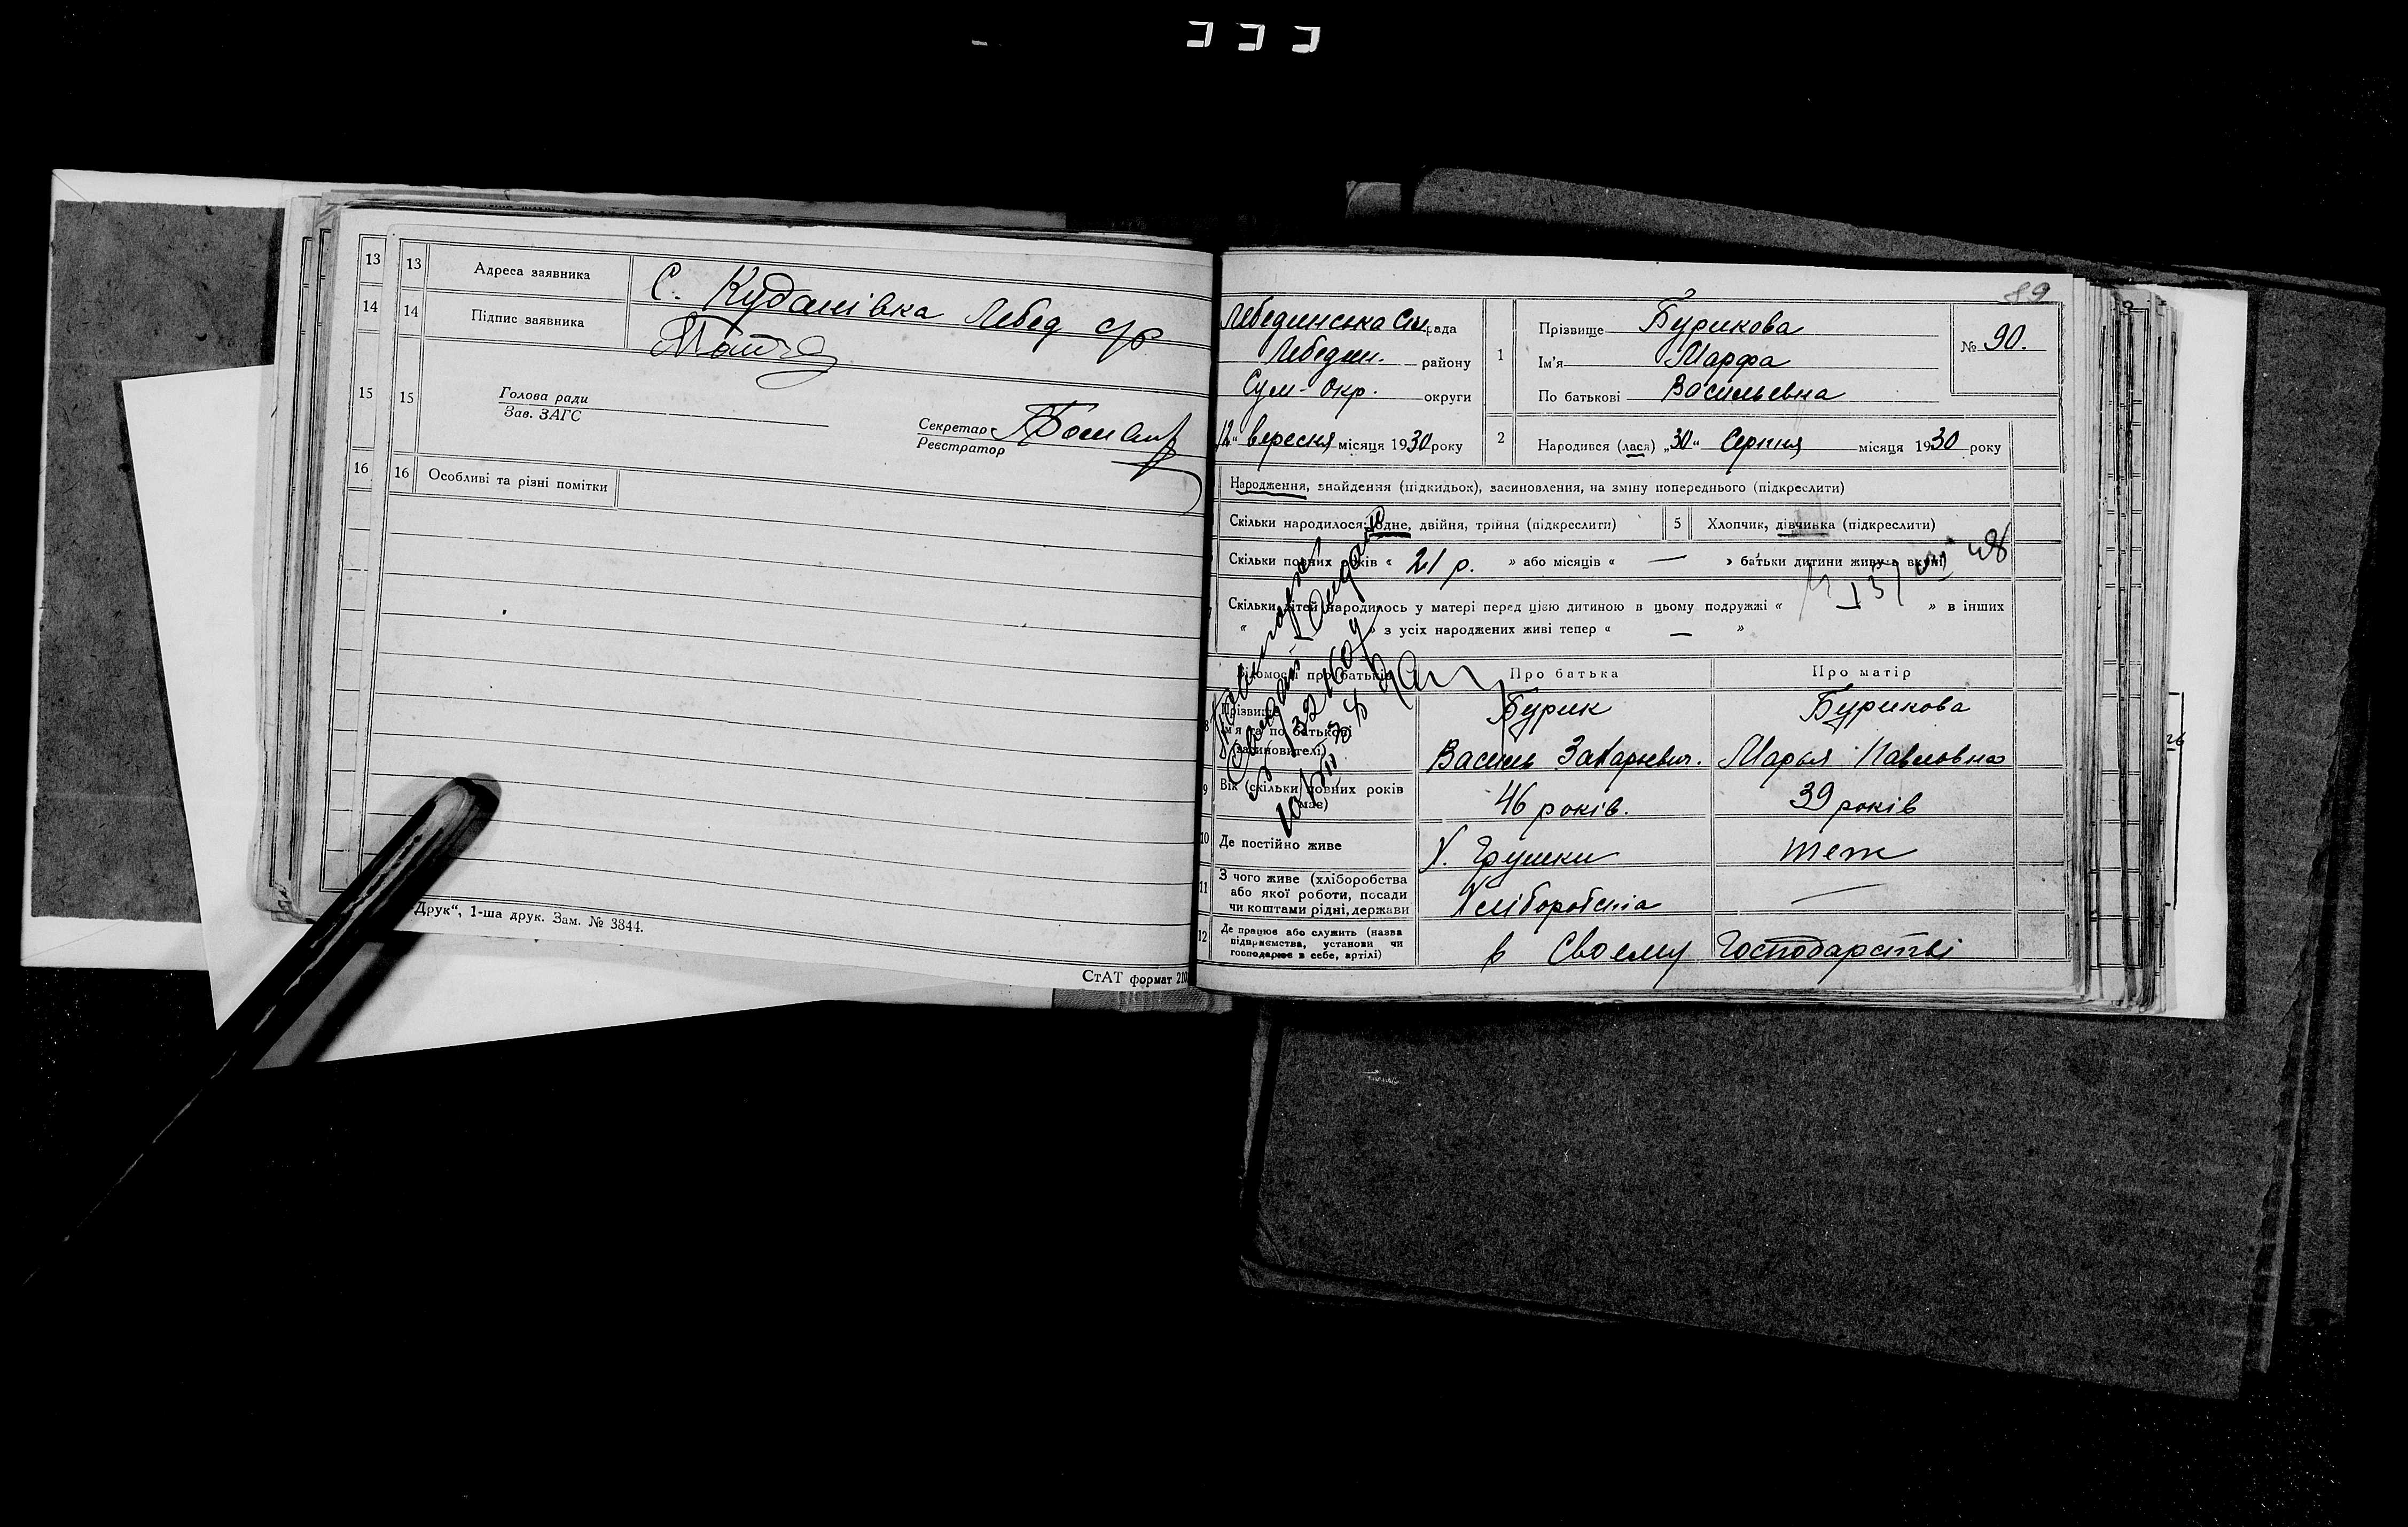 13 13 Адреса заявника С. Куданівка Лебед с/р
14 14 Підпис заявника
15 15 Голова ради
Зав. ЗАГС
Секретар
Реєстратор
16 16 Особливі та різні помітки
Друк“, 1-ша друк. Зам. № 3844.
СтАТ формат 210
89
Лебединська Сіл рада
Лебедин. району
Сум- Окр. округи
12“ вересня місяця 1930 року
1 Прізвище Бурикова
Ім'я Марфа
По батькові Васильевна
№ 90.
2 Народився (лася) „30“ Серпня місяця 1930 року
Народження, знайдення (підкидьок), засиновлення, на зміну попереднього (підкреслити)
Скільки народилося: одне, двійня, трійня (підкреслити) 5 Хлопчик, дівчинка (підкреслити)
Скільки повних років « 21 р. » або місяців « — » батьки дитини живуть вкупі
Скільки дітей народилось у матері перед цією дитиною в цьому подружжі « » в інших
« » з усіх народжених живі тепер « — »
Відомості про батьків Про батька Про матір
8 Прізвище Бурик Бурикова
ім'я та по батькові
(засиновителі) Василь Захарьевич. Марья Павловна
9 Вік (скільки повних років
має) 46 років. 39 років
10 Де постійно живе Х. Грушки теж
11 З чого живе (хліборобства
або якої роботи, посади
чи коштами рідні, держави Хліборобства —
12 Де працює або служить (назва
підприємства, установи чи
господарює в себе, артілі) в Своему Господарстві